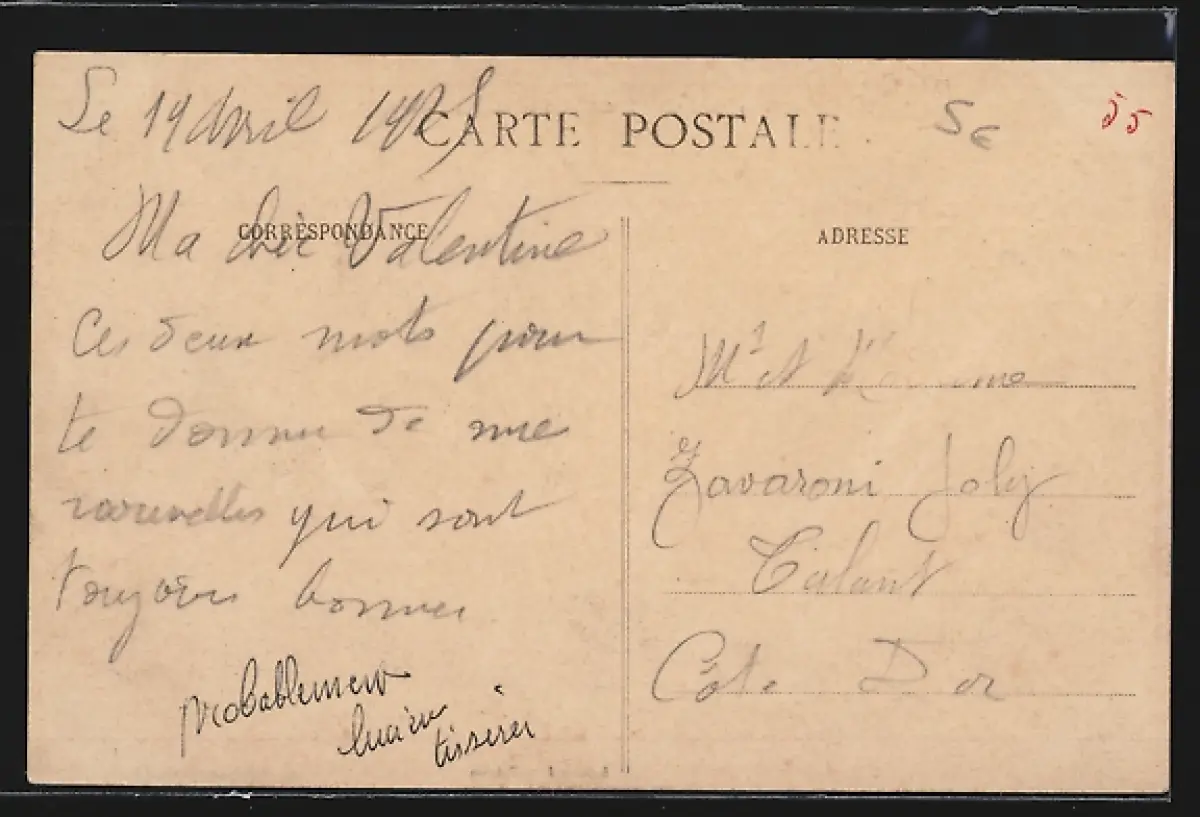 Le 19 Avril
CARTE POSTALE
5€
55
CORRESPONDANCE
Ma chèr Valentine
Ces deux mots pour
te donner de mes
nouvelles qui sont
toujours bonnes
probablement
lucien
tisserier
ADRESSE
Mr et
Zavaroni Joly
Talant
Cote D or